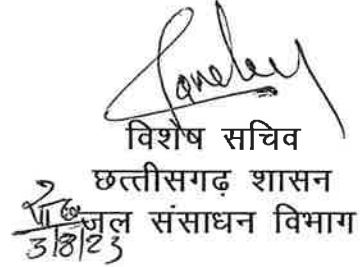 विशेष सचिव
छत्तीसगढ़ शासन
जल संसाधन विभाग
3/8/23